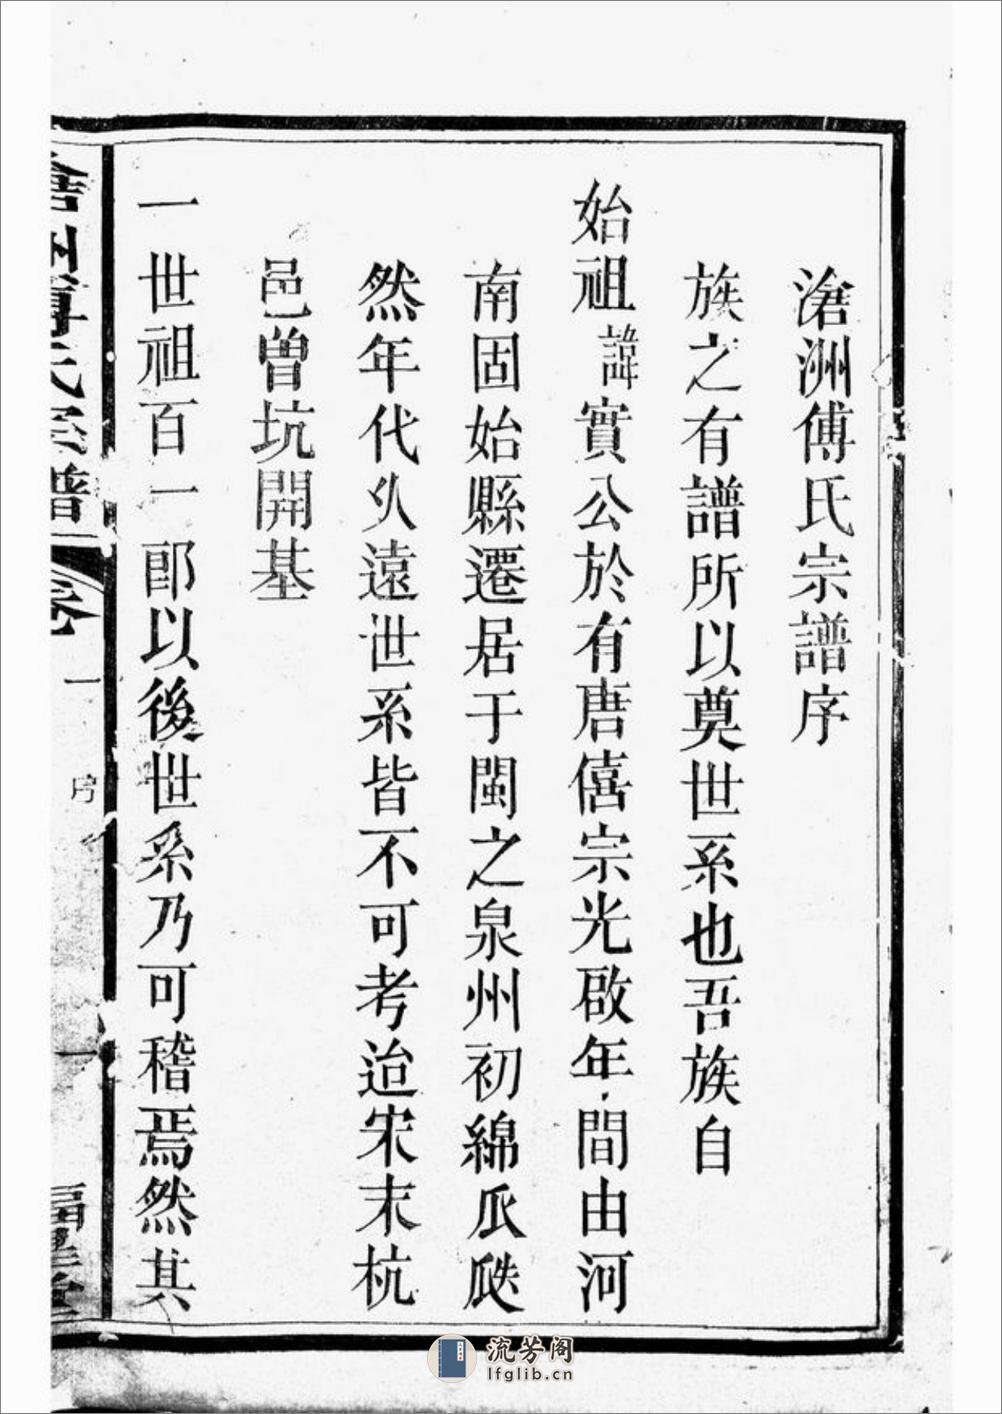 滄洲傅氏宗譜序
族之有譜所以奠世系也吾族自
始祖諱實公於有唐僖宗光啟年間由河
南固始縣遷居于閩之泉州初綿瓜瓞
然年代乆遠世系皆不可考迨宋末杭
邑曽坑開基
一世祖百一郎以後世系乃可稽焉然其
滄洲傅氏宗譜
卷一
序
一
流芳阁
lfglib.cn